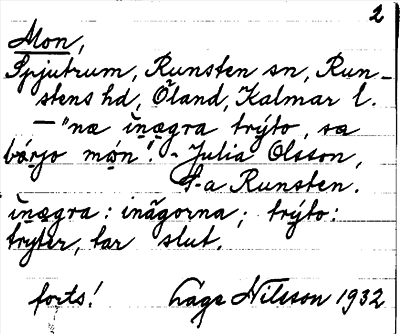 2
Mon,
Spjutrum, Runsten sn, Run-
stens hd, Öland, Kalmar l.
— "næ ĭnægra trýto, sæ
bárjo mǫ́n". - Julia Olsson,
f-a Runsten.
ĭnægra: inägorna; trýto:
tryter, tar slut.
forts! Låge Nilsson 1932